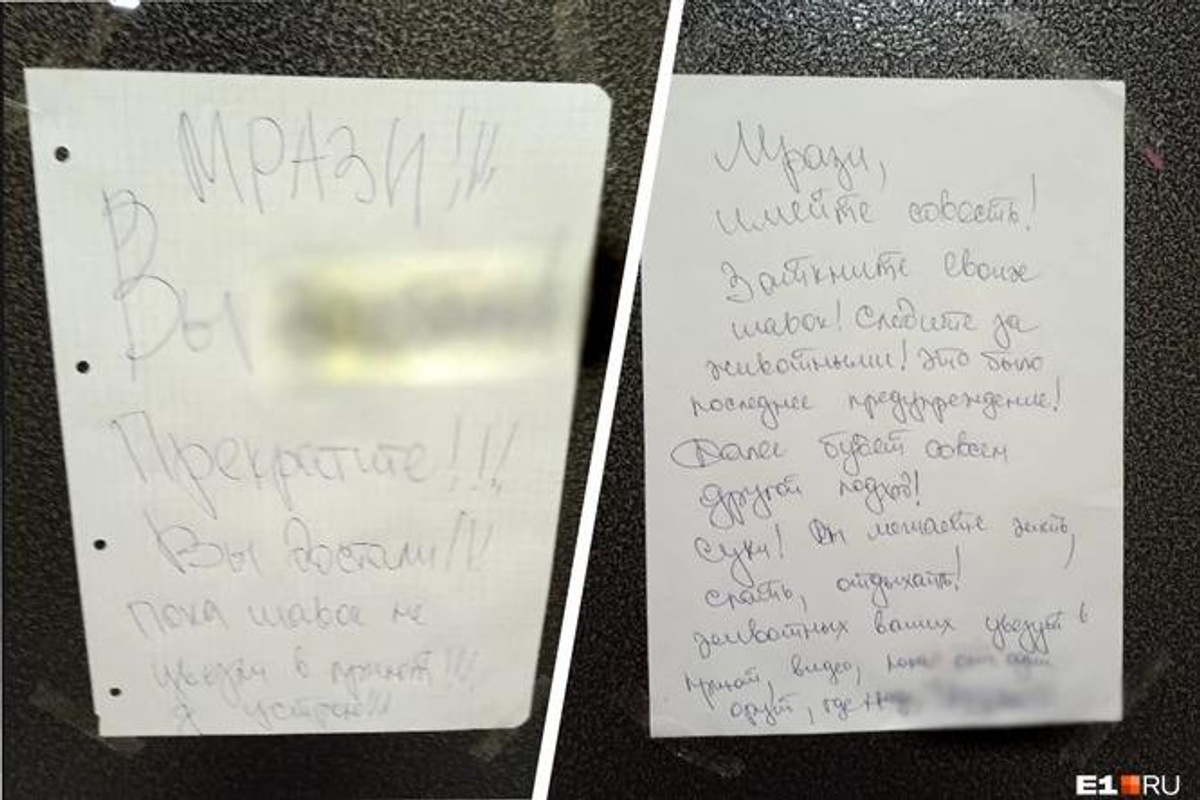 МРАЗИ!!!
Вы
Прекратите!!!
Вы достали!!!
Пока шавок не
увезли в приют!!!
Я устрою!!!
Мрази,
имейте совесть!
Заткните своих
шавок! Следите за
животными! Это было
последнее предупреждение!
Далее будет совсем
другой подход!
Суки! Вы мешаете жить,
спать, отдыхать!
животных ваших увезут в
приют, видео, пока они одни
орут, где
E1.RU